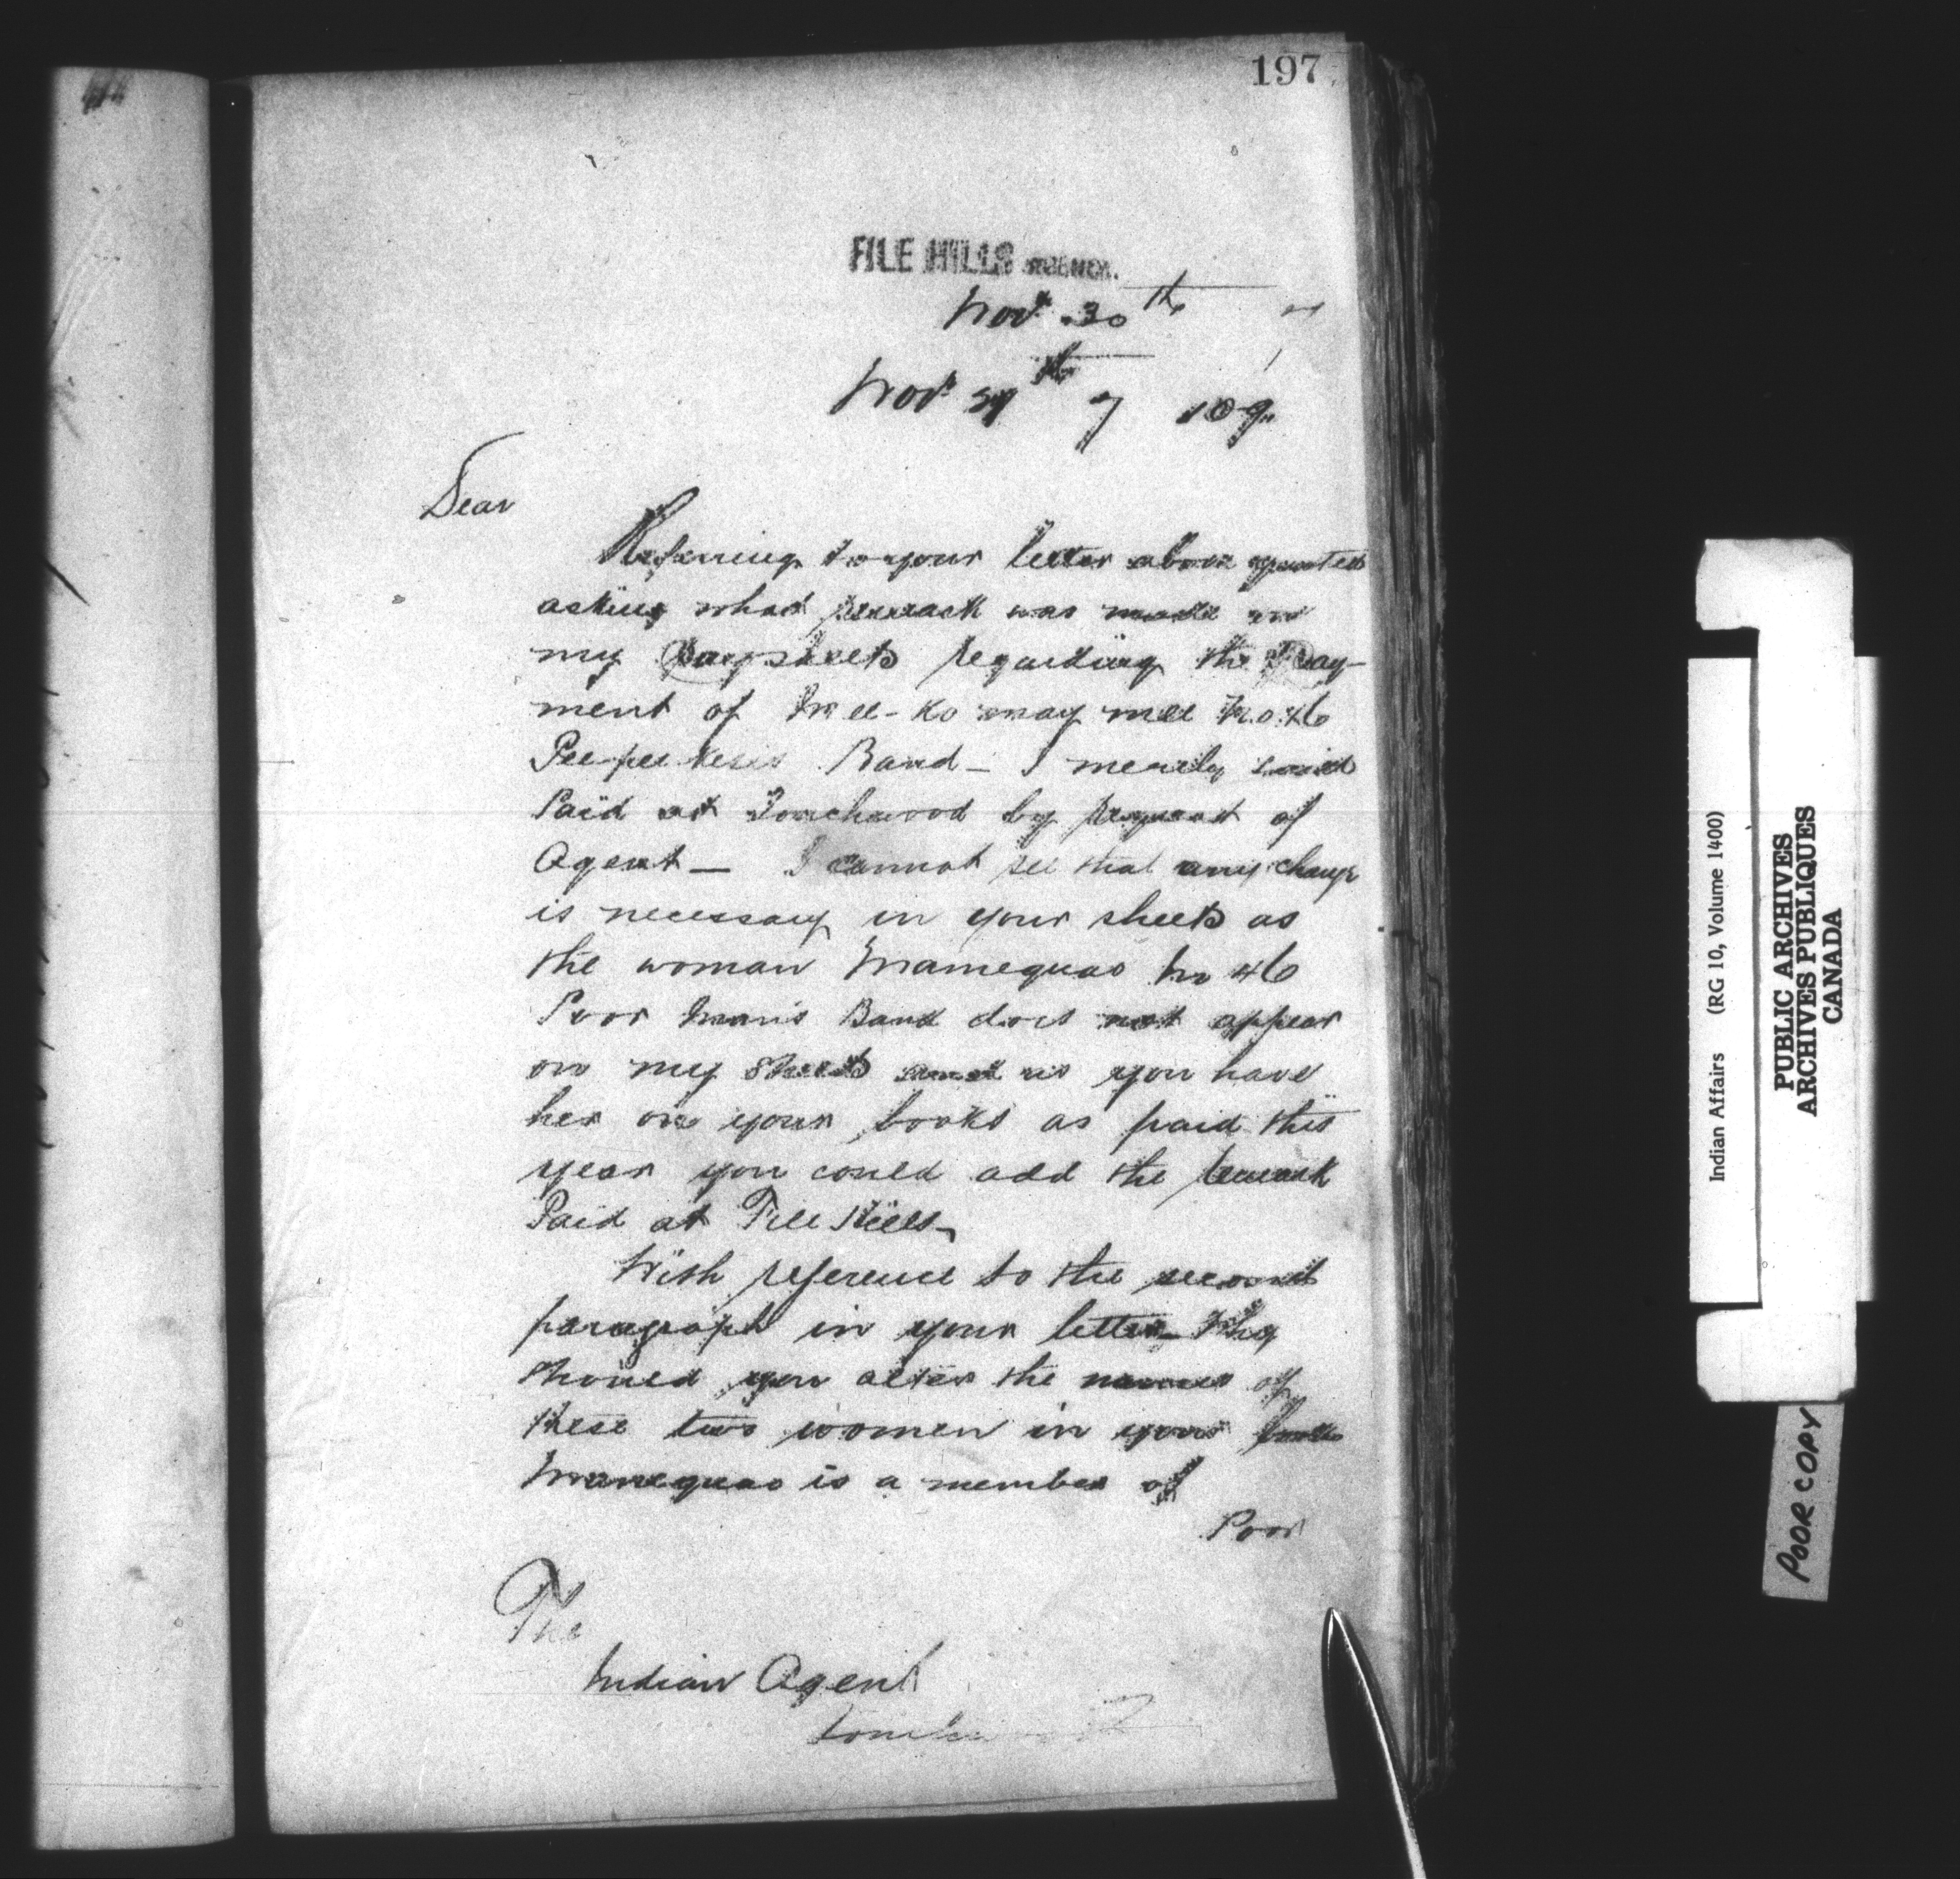 197
FILE HILLS AGENCY.
Nov. 30th
Nov 7 109
Dear
Referring to your letter above quoted
asking what remark was made in
my Paysheets regarding the Pay-
ment of Mee-ko may mee No 46
Pee-pee kesis Band - I merely said
Paid at Touchwood by request of
Agent - I cannot see that any change
is necessary in your sheets as
the woman Mamequas No 46
Poor Man's Band does not appear
on my sheets and as you have
her on your books as paid this
year you could add the remark
Paid at File Hills -
With reference to the second
paragraph in your letter - Why
should you alter the names of
these two women in your books
Mamequas is a member of
Poor
The
Indian Agent
Touchwood
Indian Affairs (RG 10, Volume 1400)
PUBLIC ARCHIVES
ARCHIVES PUBLIQUES
CANADA
POOR COPY